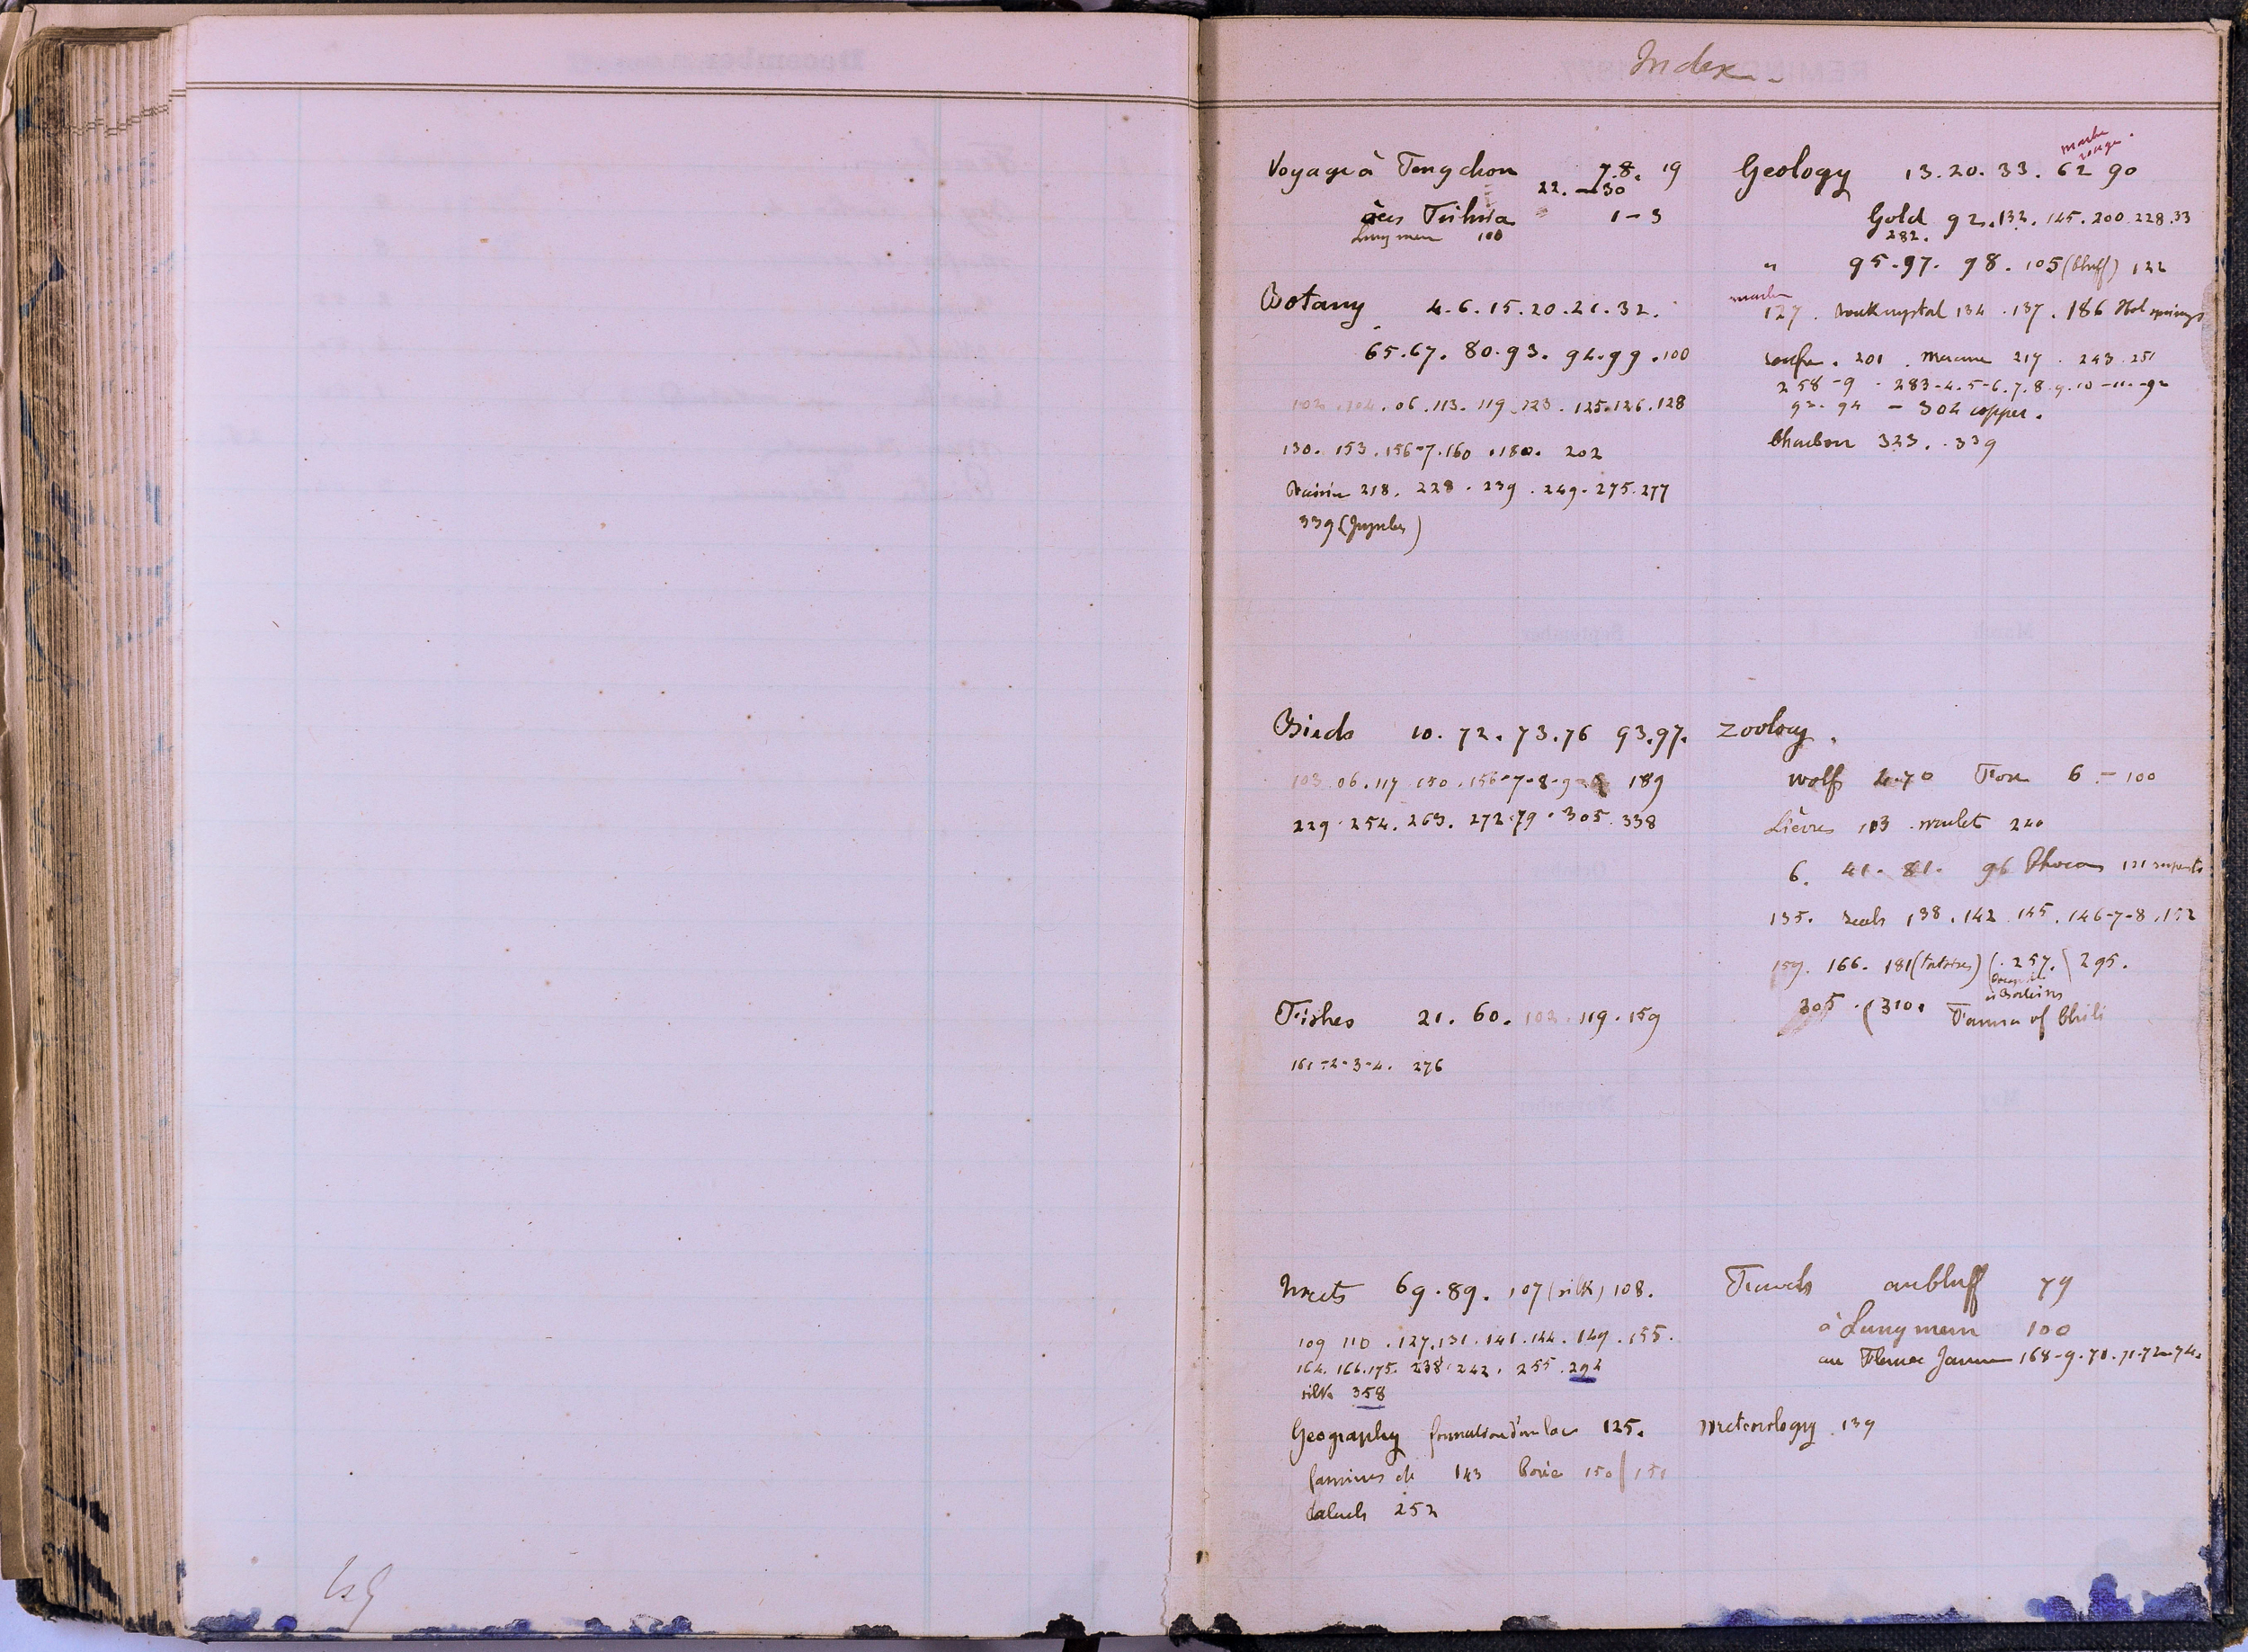 Index
Voyage à Tengchou 7.8. 19
22. – 30
1 – 3
Lungmen 100
Botany 4.6.15.20.21.32.
65.67. 80.93. 94.99.100
102.104.06.113.119.123.125.126.128
130. 153.156-7.160.180. 202
218. 228. 239. 249. 275.277
339 (Jujubes)
Birds 10. 72. 73.76 93.97.
103.06.117.150.156-7-8-9 189
229.254.263.272.79.305.338
Fishes 21. 60. 102.119.159
161-2-3-4. 276
Insects 69.89. 107 (silk) 108.
109 110.127.131.141.144.149.155.
164.166.175.238.242.255.292
silk 358
Geography formation d'un lac 125.
famines de 143 Corée 150 / 151
252
marbre
rouge.
Geology 13.20.33. 62 90
Gold 92.132.145.200.228.33
282.
" 95.97. 98. 105 (bluff) 122
marbre
127. rockcrystal 134.137. 186 Hot springs
201. 217. 243.251
258-9. 283-4.5-6.7.8.9.10-11.-92
92. 94 – 302 copper.
Charbon 323. 339
Zoology.
Wolf 4.70 Fox 6 – 100
Lièvres 103. mulet 240
6. 41. 81. 96 Phocas 121 serpents
135. seals 138.142.145.146-7-8.152
159. 166. 181 (tortoises) (. 257. \ 295.
305. (310. Fauna of Chili
Travels au bluff 79
à Lungmen 100
au Fleuve Jaune 168-9.70.71-72-74.
Meteorology. 139